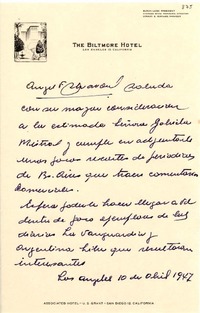 THE BILTMORE HOTEL
LOS ANGELES 13 CALIFORNIA
saluda
con su mayor consideracion
a la estimada Señora Gabriela
Mistral y cumple en adjuntarle
unos recortes de periodicos
de Bs. Aires que traen comentarios
Espera poderle hacer llegar a Ud
dentro de poco ejemplares de los
diarios La Vanguardia y
Argentina Libre que resultaran
interesantes
Los Angeles 10 de Abril 1947
ASSOCIATED HOTEL - U. S. GRANT - SAN DIEGO 12, CALIFORNIA